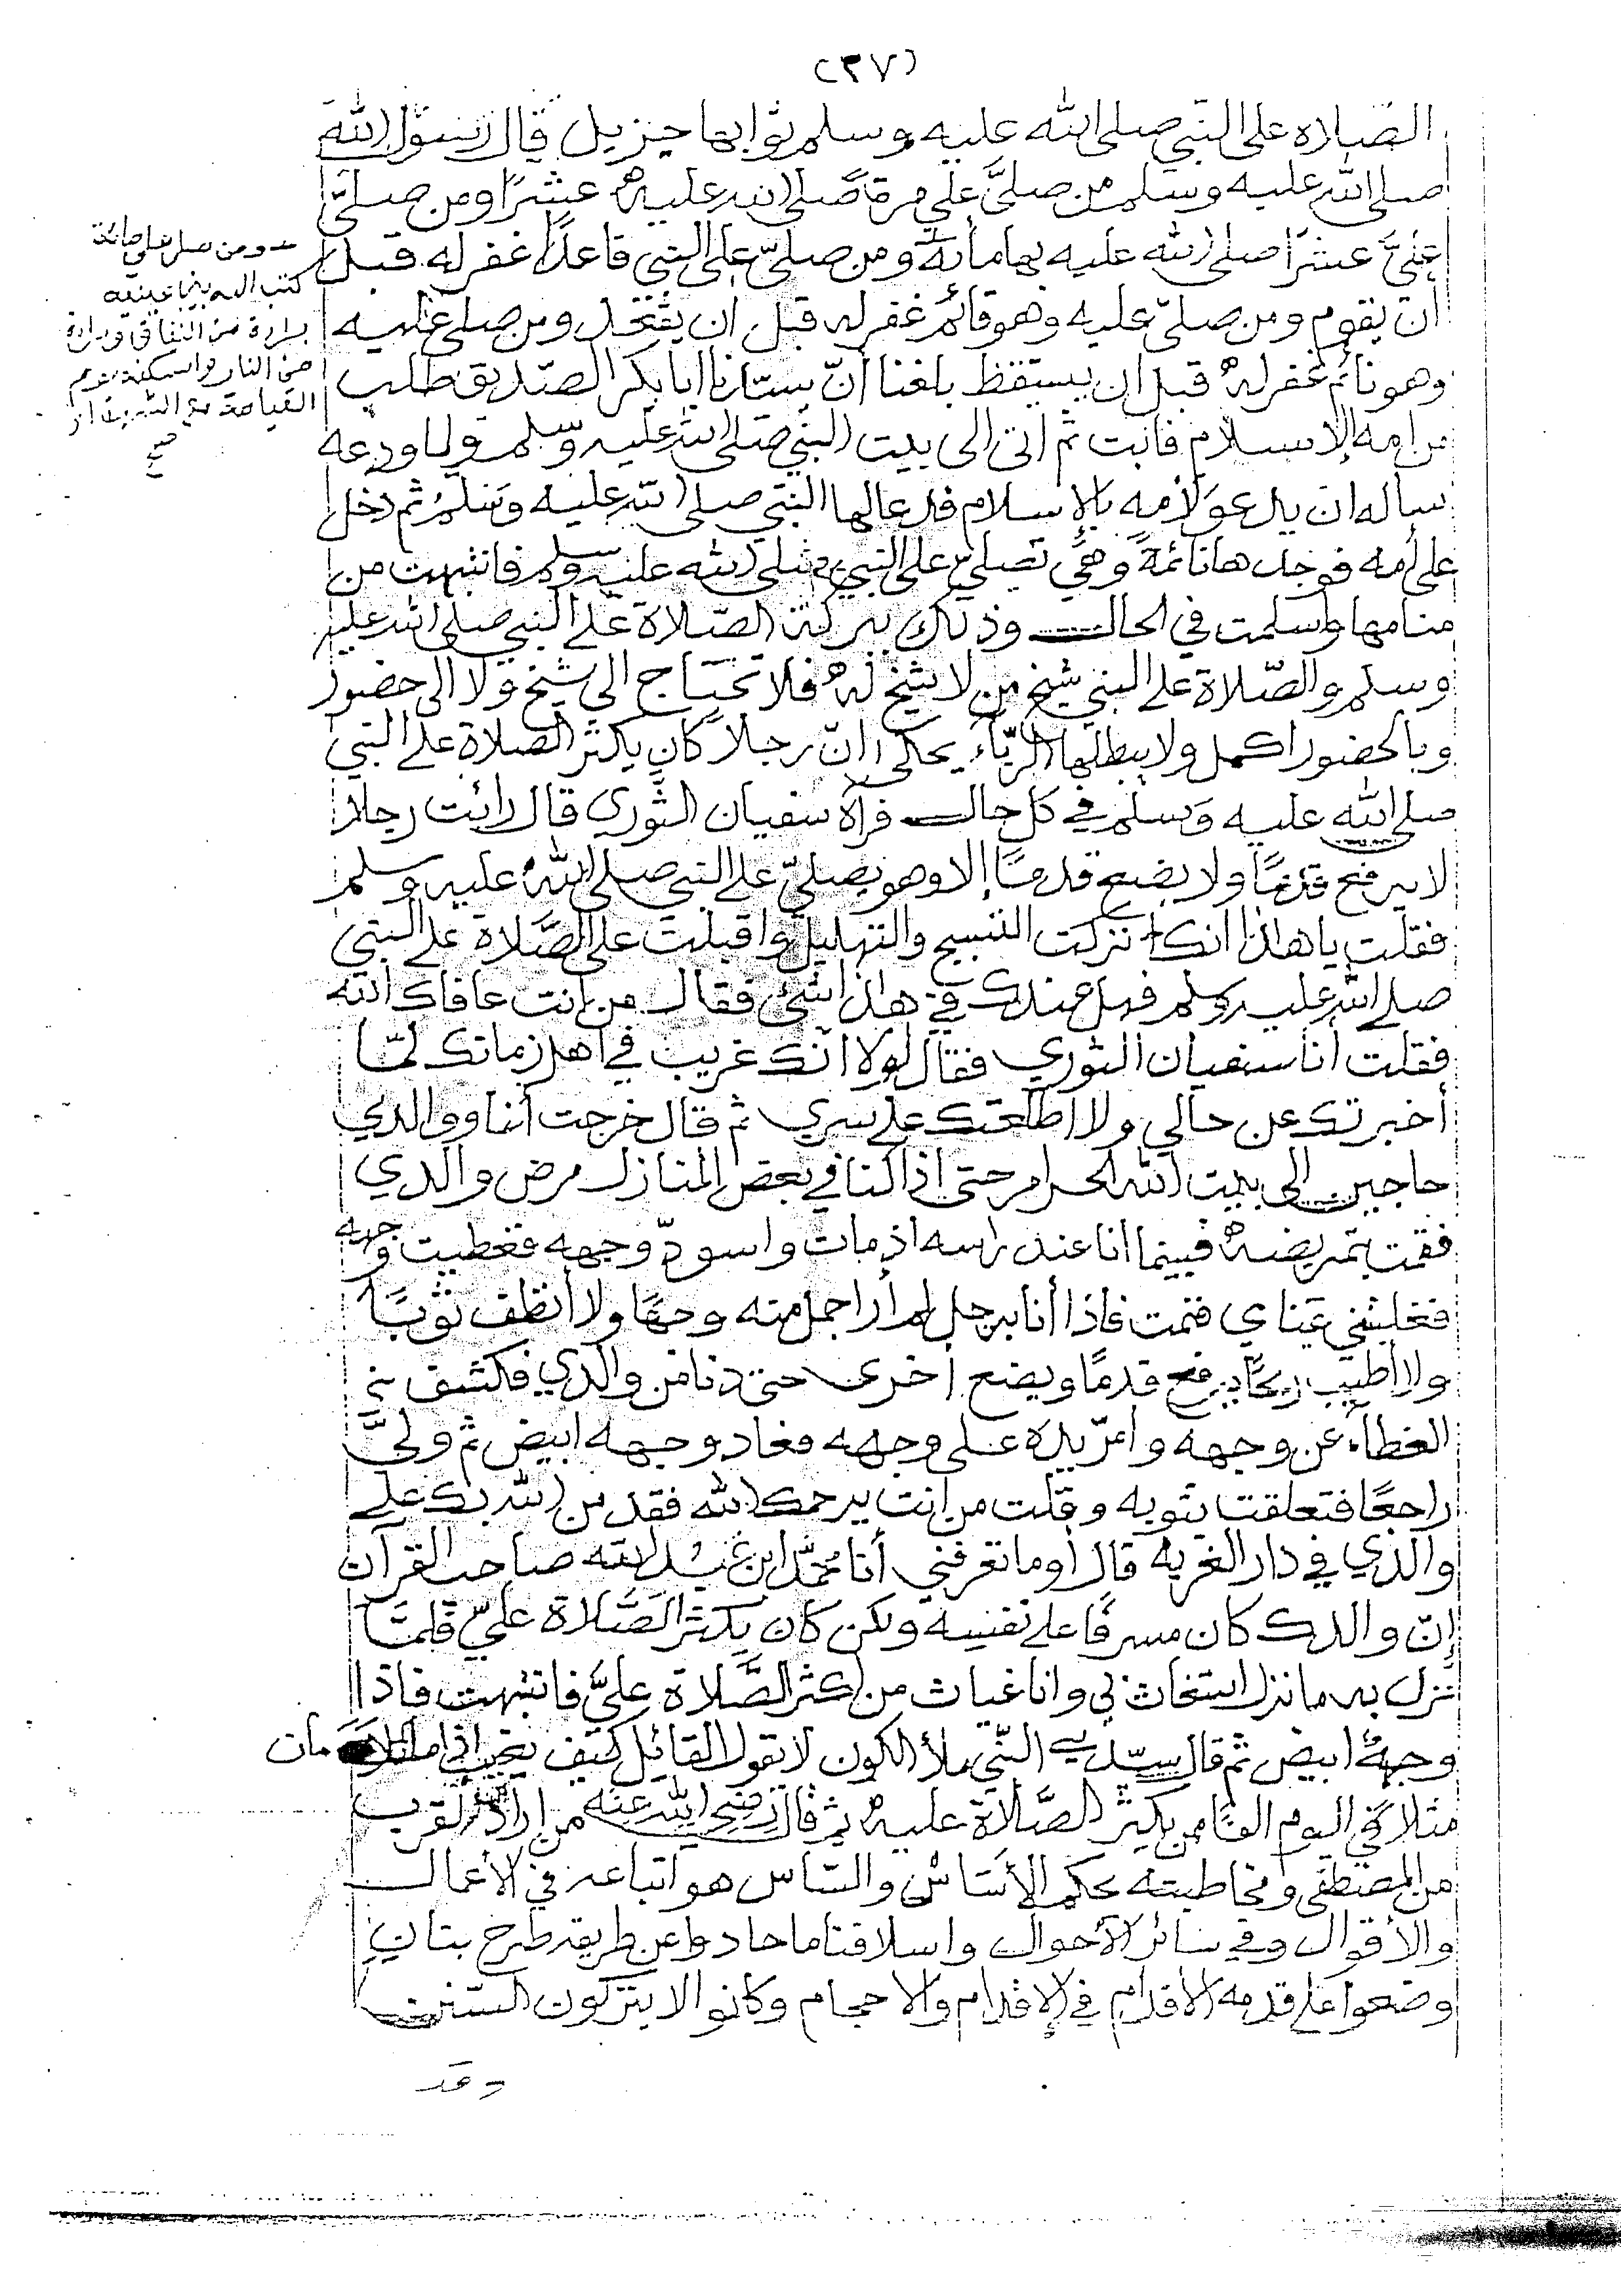 (٣٧)
الصلاه على النبي صلى الله عليه وسلم ثوابها جزيل قال رسول الله
صلى الله عليه وسلم من صلىّ علي مرة صلى الله عليه عشرًا ومن صلىّ
عليّ عشرًا صلى الله عليه بها مأئة ومن صلىّ على النبي قاعدًا غفر له قبل
ان يقوم ومن صلىّ عليه وهو قائم غفر له قبل ان يقعد ومن صلى عليه
وهو نائم غفر له قبل ان يستيقظ بلغنا أنّ سيّدنا ابا بكر الصّديق طلب
من امه الإسلام فابت ثم اتى الى بيت النبي صلى الله عليه وسلم ولما ودعه
سأله ان يدعو لأمه بالإسلام فدعا لها النبي صلى الله عليه وسلم ثم دخل
على أمه فوجدها نائمةً وهي تصلي على النبي صلى الله عليه وسلم فانتبهت من
منامها واسلمت في الحال وذلك ببركة الصّلاة على النبي صلى الله عليه
وسلم والصّلاة على النبي شيخ من لا شيخ له فلا تحتاج الى شيخ ولا الى حضور
وبالحضور اكمل ولا يبطلها الريّاء يحكى انّ رجلاً كان يكثر الصلاة على النبي
صلى الله عليه وسلم في كل حال فرآه سفيان الثوري قال رائت رجلا
لا يرفع قدمًا ولا يضع قدمًا إلا وهو يصليّ على النبي صلى الله عليه وسلم
فقلت يا هاذا انك تركت التسبيح والتهليل واقبلت على الصّلاة على النبي
صلى الله عليه وسلم فهل عندك في هاذا شئ فقال من انت عافاك الله
فقلت أنا سفيان الثوري فقال لولا انّك غريب في اهل زمانك لمّا
أخبرتك عن حالي ولا اطلعتك على سري ثم قال خرجت أنا ووالدي
حاجين الى بيت الله الحرام حتى اذا كنا في بعض المنازل مرض والدي
فقمت بتمريضه فبينما انا عند راسه اذ مات واسودّ وجهه فغطيت وجهه
فغلبتني عيناي فنمت فاذا أنا برجل لم أر اجمل منه وجهًا ولا أنظف ثوبًا
ولا أطيب ريحًا يرفع قدمًا ويضع اخرى حتى دنا من والدي فكشف
الغطاء عن وجهه وامرّ يده على وجهه فعاد وجهه ابيض ثم ولىّ
راجعًا فتعلقت بثوبه وقلت من انت يرحمك الله فقد من الله بك على
والدي في دار الغربه قال أوما تعرفني أنا محمّد ابن عبد الله صاحب القرآن
إنّ والدك كان مسرفًا على نفسه ولكن كان يكثر الصّلاة عليّ فلمّا
نزل به ما نزل استغاث بي وانا غياث من اكثر الصّلاة عليّ فانتبهت فاذا
وجهه ابيض ثم قال سيّدي النّبي ملأ الكون لا يقول القائل كيف يجيب اذا مات
مثلا في اليوم الفًا من يكثر الصّلاة عليه ثم قال رضي الله عنه من اراد القرب
من المصطفى ومخاطبته يحكم الأساس والسّاس هو اتباعه في الأعمال
والأقوال وفي سائر الأحوال واسلافنا ما حادوا عن طريقه طرح بنان
وضعوا على قدمه الاقدام في الإقدام والاحجام وكانوا لا يتركون السّنن
ومن صلى علي مائة
كتب الله بين عينيه
براءة من النفاق وبراءة
من النار واسكنه يوم
القيامة مع الشهداء
صح
وقد